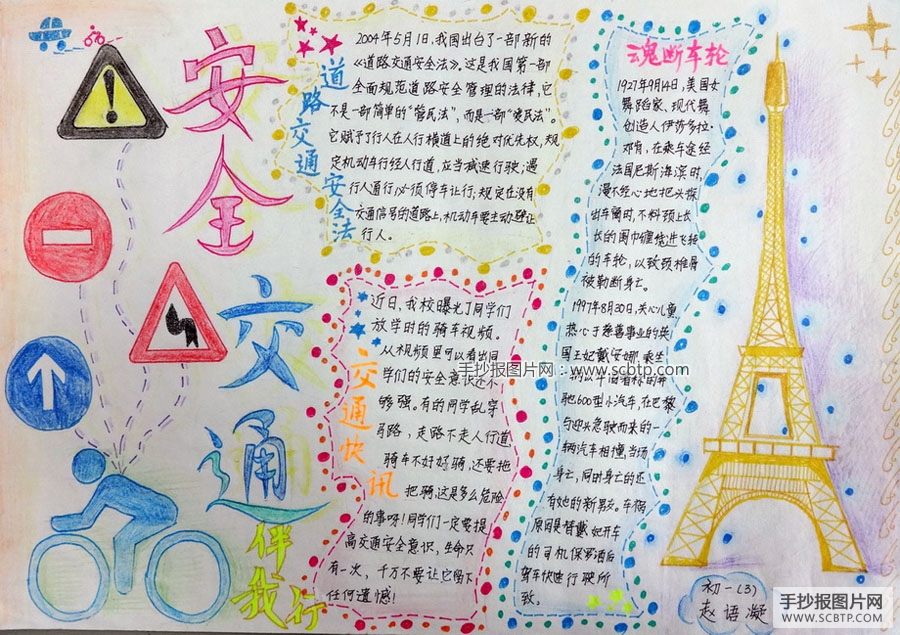 安全交通
伴我行
道路交通安全法
2004年5月1日,我国出台了一部新的
《道路交通安全法》。这是我国第一部
全面规范道路安全管理的法律,它
不是一部简单的“管民法”,而是一部“爱民法”。
它赋予了行人在人行横道上的绝对优先权,规
定机动车行经人行道,应当减速行驶;遇
行人通行,必须停车让行;规定在没有
交通信号的道路上,机动车要主动避让
行人。
交通快讯
近日,我校曝光了同学们
放学时的骑车视频。
从视频里可以看出同
学们的安全意识还不
够强。有的同学乱穿
马路,走路不走人行道,
骑车不好好骑,还要把
把骑,这是多么危险
的事呀!同学们一定要提
高交通安全意识,生命只
有一次,千万不要让它留下
任何遗憾!
魂断车轮
1927年9月14日,美国女
舞蹈家、现代舞
创造人伊莎多拉·
邓肯,在乘车途经
法国尼斯海滨时,
漫不经心地把头探
出车窗时,不料颈上长
长的围巾缠绕进飞轮
的车轮,以致颈椎骨
被勒断身亡。
1997年8月30日,关心儿童,
热心于慈善事业的英
国王妃戴安娜,乘坐
的以牢固著称的奔
驰600型小汽车,在巴黎
与迎头急驶而来的一
辆汽车相撞,当场
身亡,同时身亡的还
有她的新男友。车祸
原因是替戴妃开车
的司机保罗酒后
驾车快速行驶所
致。
初一(3)
赵语凝
手抄报图片网:www.scbtp.com
手抄报图片网
WWW.SCBTP.COM